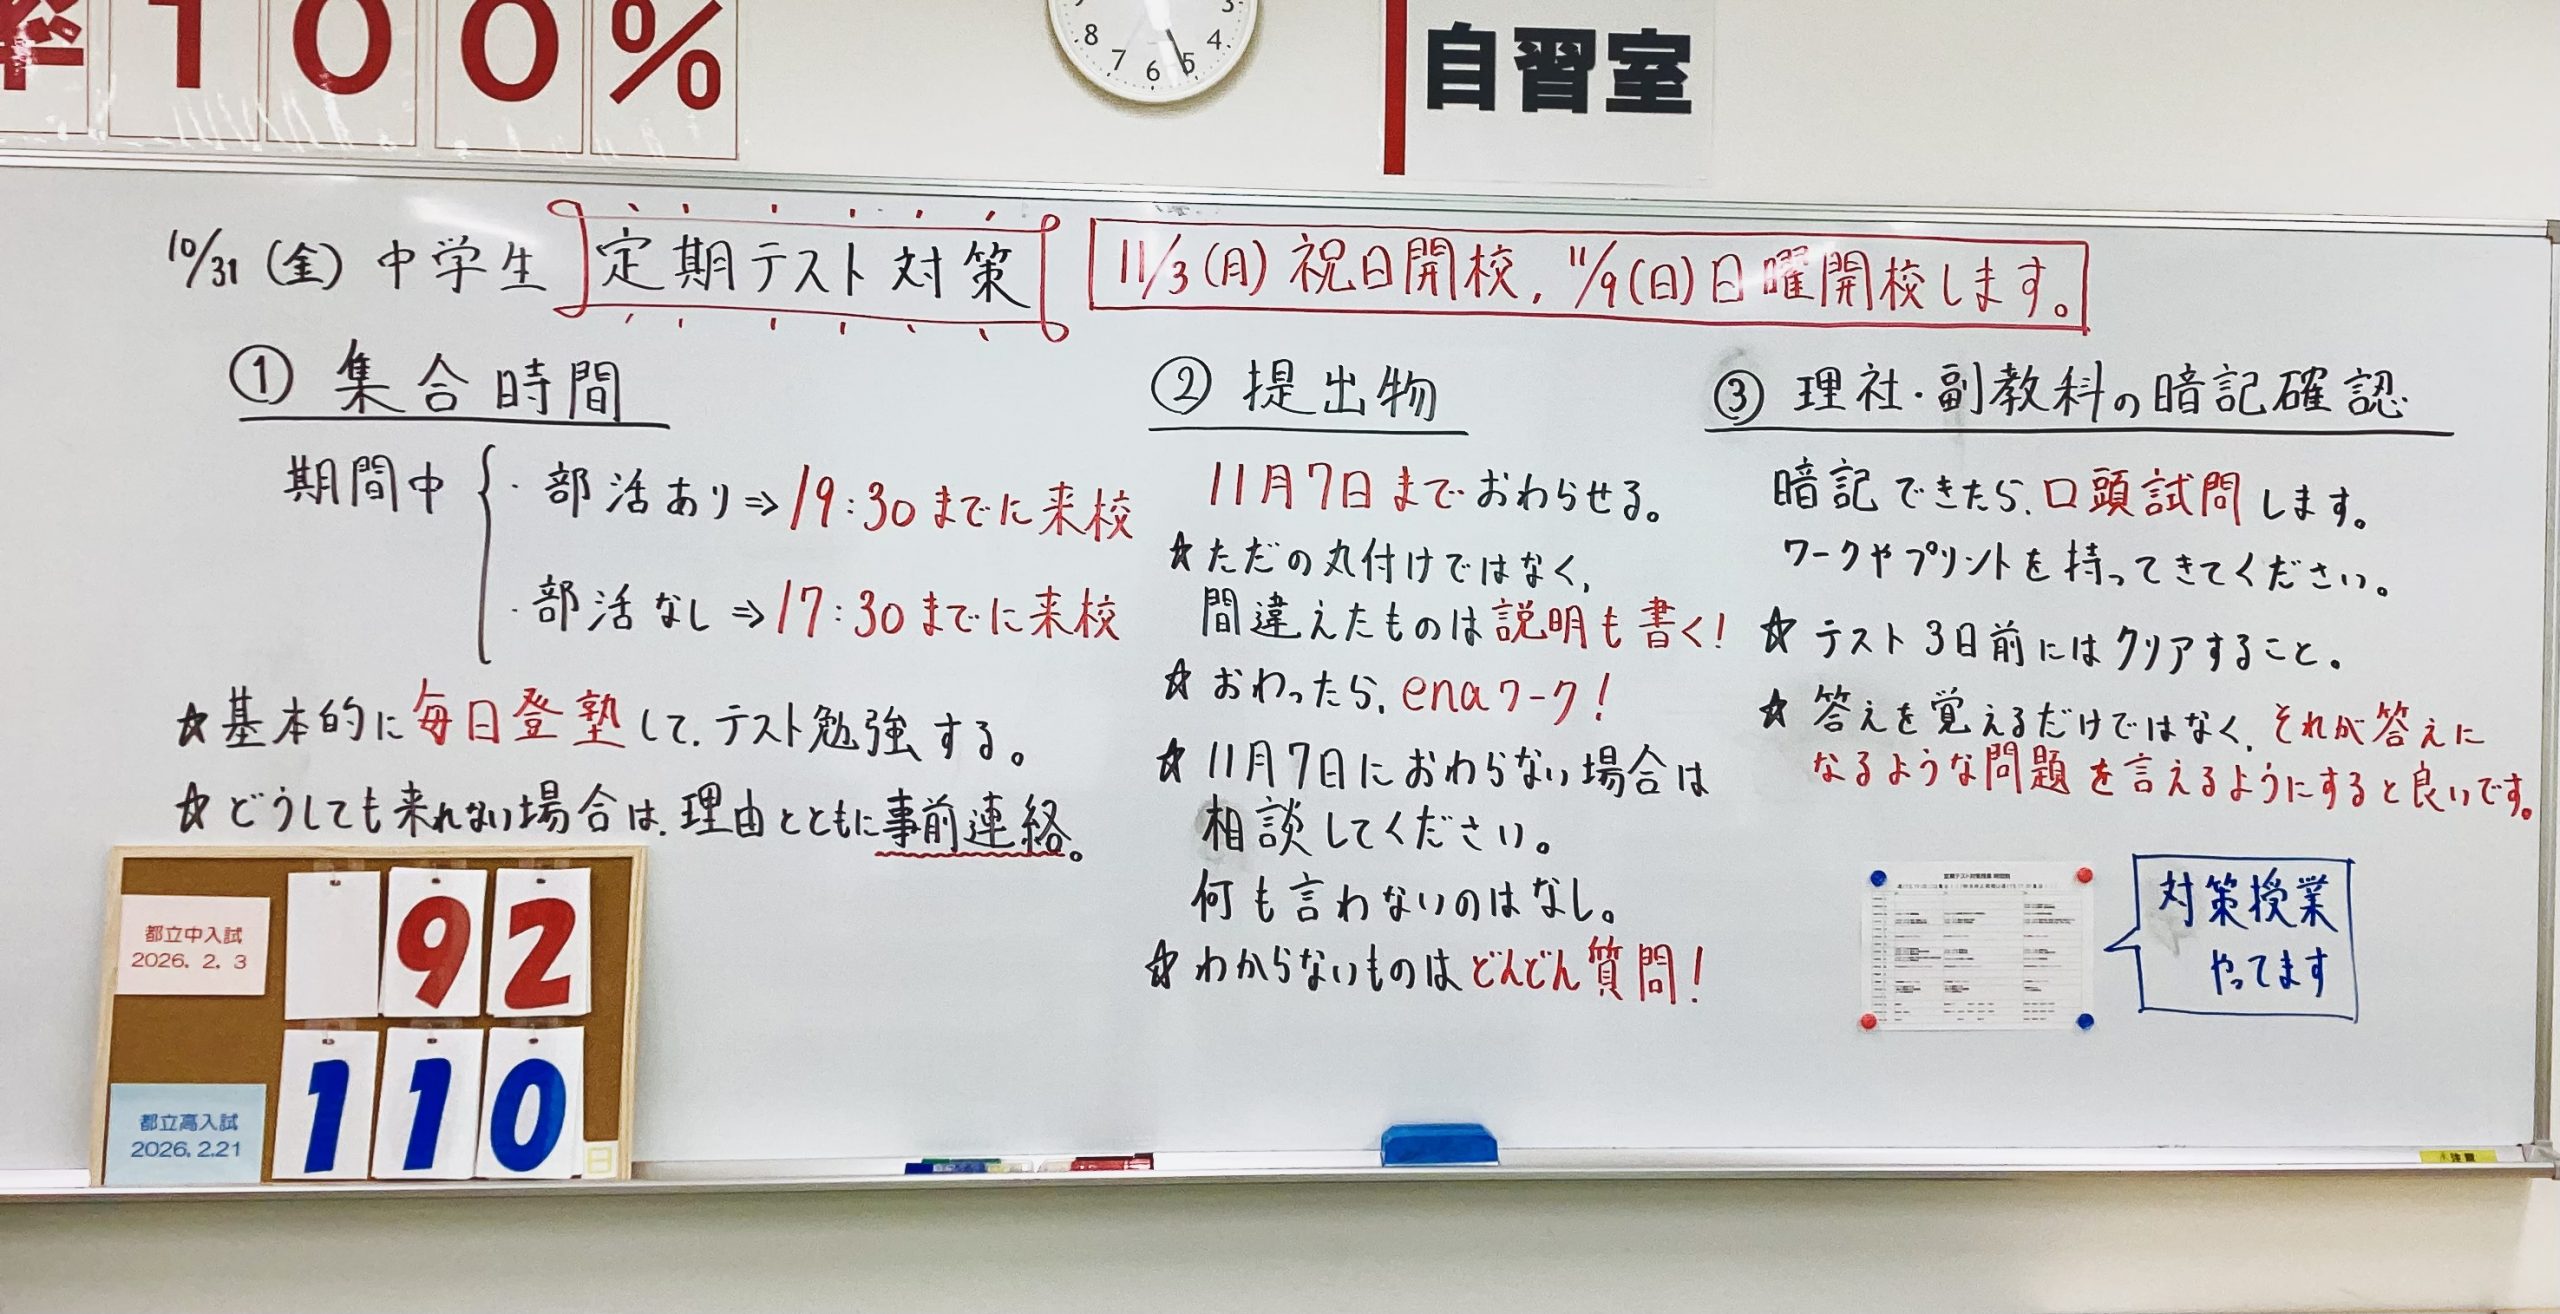 率100%
8 7 6 5 4 3
自習室
10/31(金) 中学生 定期テスト対策
11/3(月) 祝日開校, 11/9(日) 日曜開校します。
① 集合時間
期間中
・部活あり⇒19:30までに来校
・部活なし⇒17:30までに来校
☆基本的に毎日登塾して、テスト勉強する。
☆どうしても来れない場合は、理由とともに事前連絡。
② 提出物
11月7日までおわらせる。
☆ただの丸付けではなく、
間違えたものは説明も書く!
☆おわったら、enaワーク!
☆11月7日におわらない場合は
相談してください。
何も言わないのはなし。
☆わからないものはどんどん質問!
③ 理社・副教科の暗記確認
暗記できたら、口頭試問します。
ワークやプリントを持ってきてください。
☆テスト3日前にはクリアすること。
☆答えを覚えるだけではなく、それが答えに
なるような問題を言えるようにすると良いです。
対策授業
やってます
都立中入試
2026.2.3
92
都立高入試
2026.2.21
110
日
注意